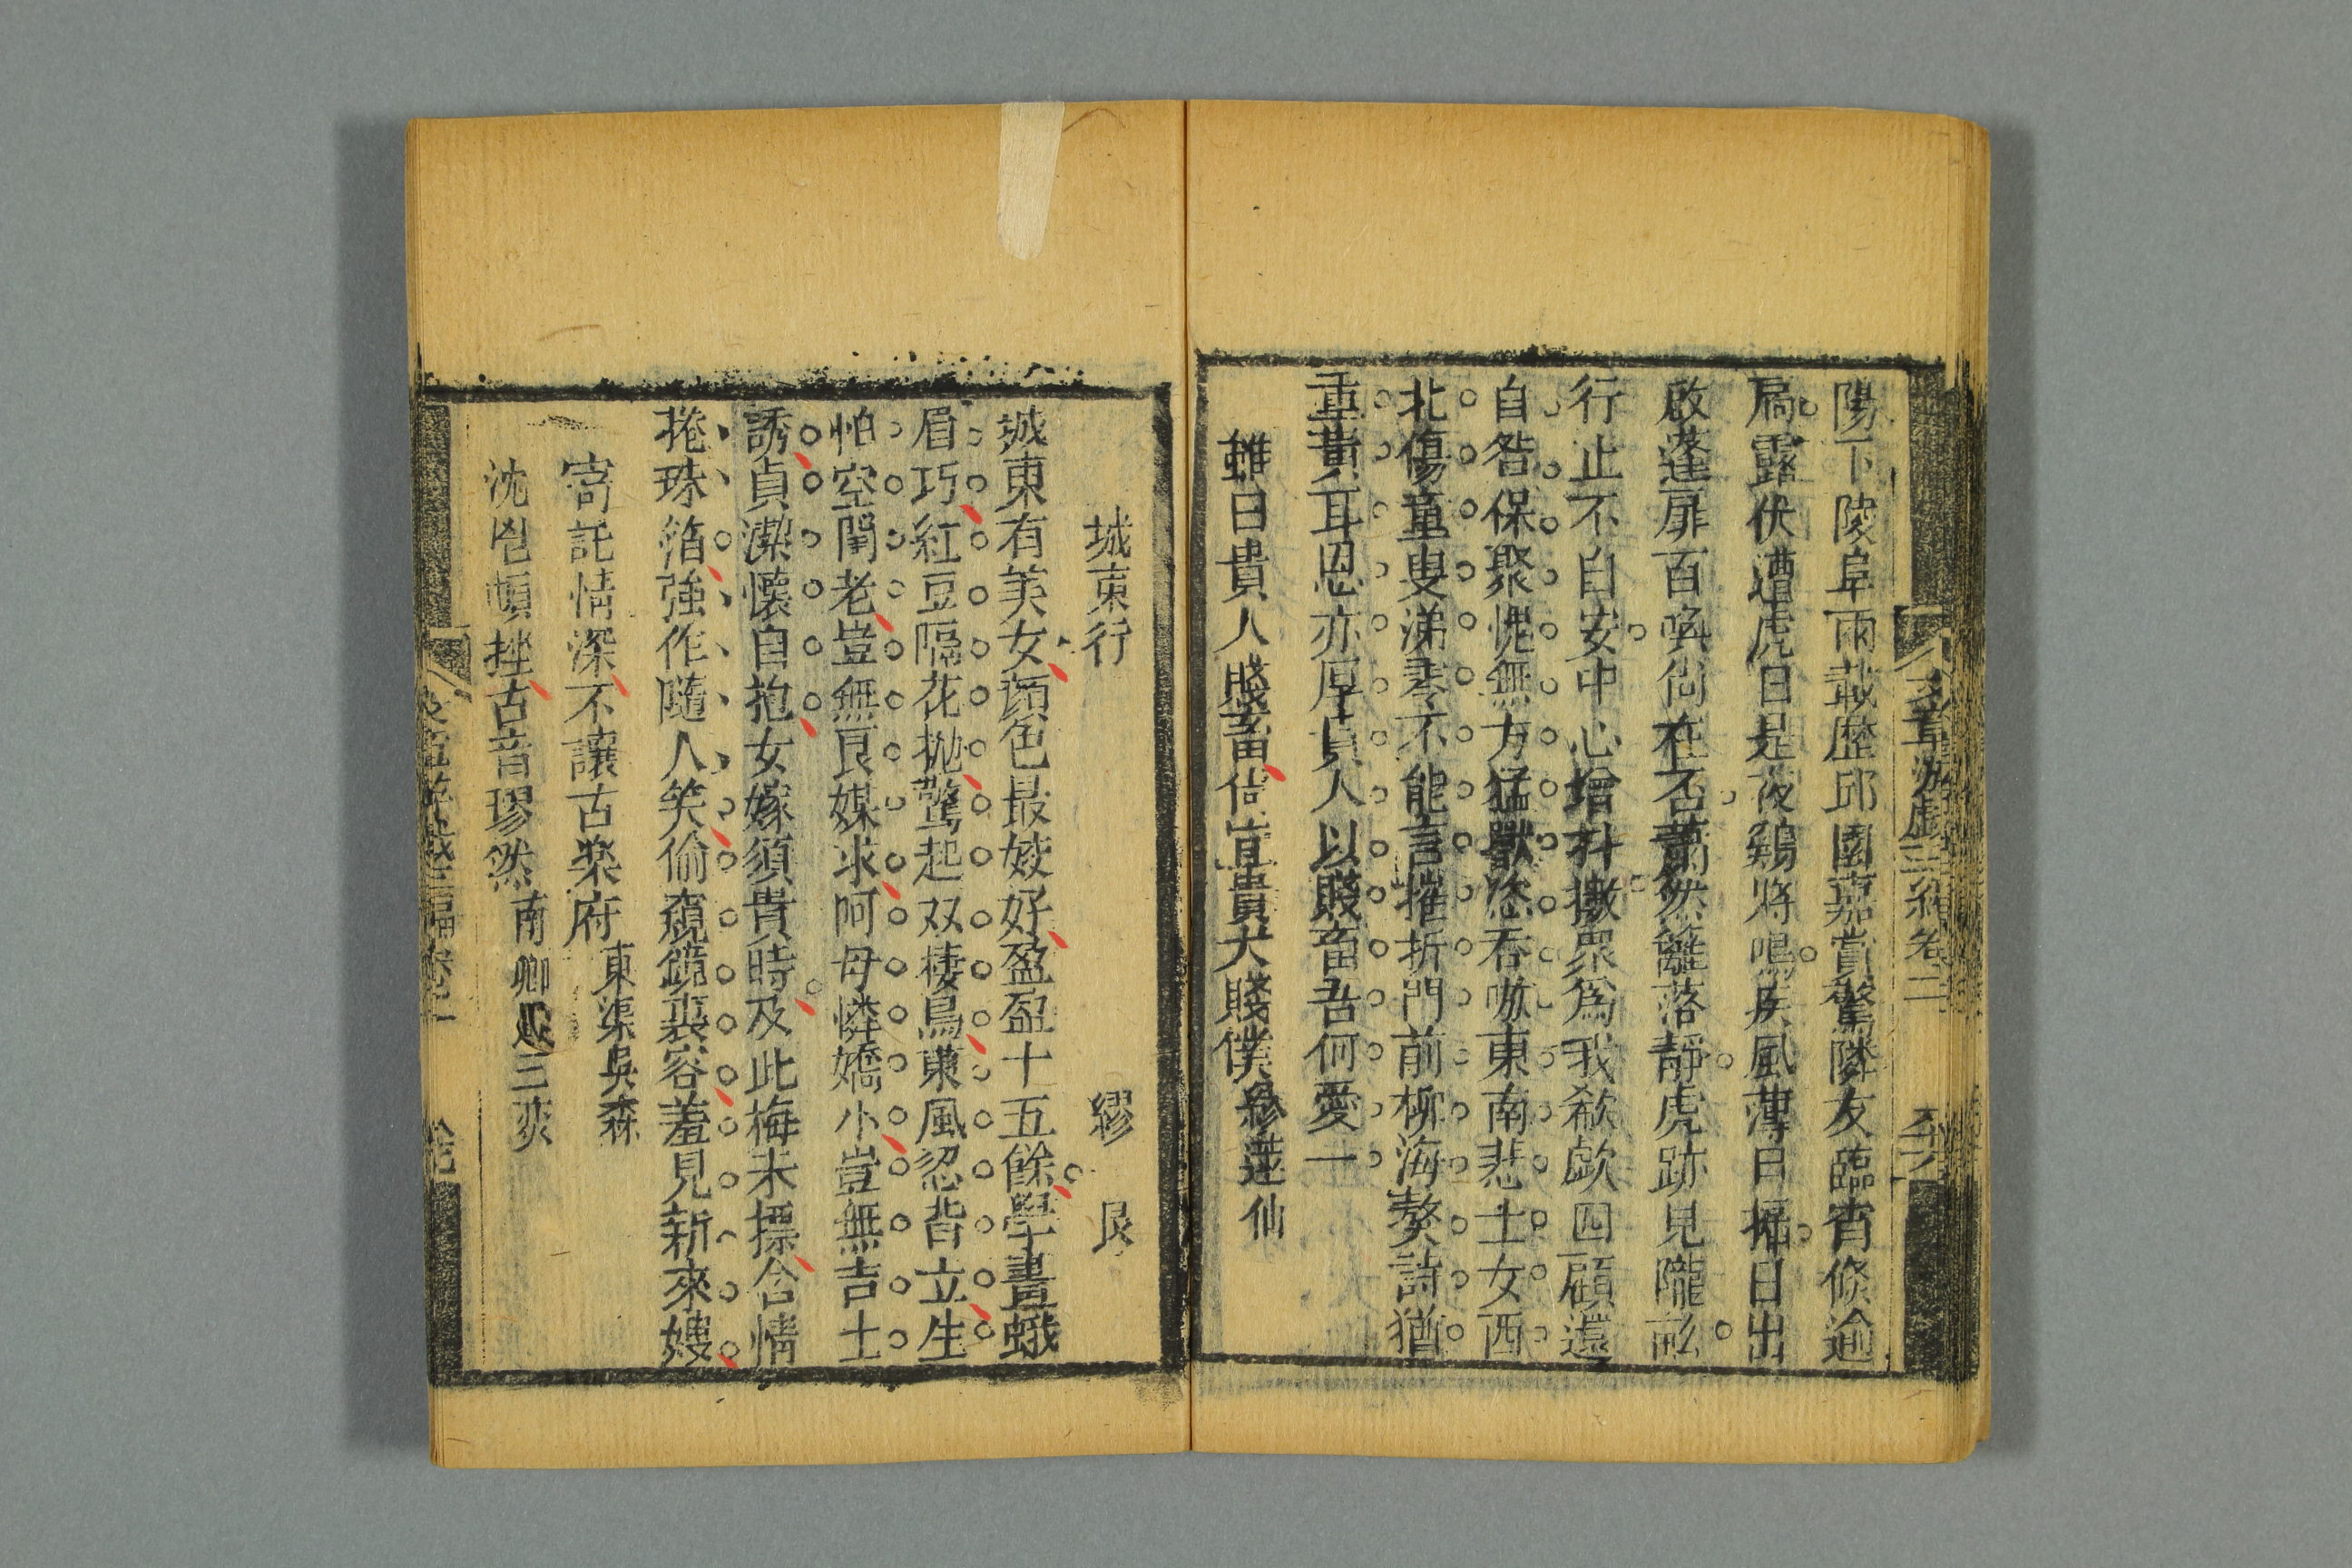 陽下陵阜雨載歷邱園嘉賞驚隣友臨宵倏逾
扃露伏遭虎曰是夜鷄將鳴疾風薄日掘日出
啟蓬扉百喚尙在否蕭然籬落靜虎跡見隴
行止不自安中心增抖擻眾爲我欷歔四顧還
自咎保聚愧無方猛獸恣吞嗷東南悲士女西
北傷童叟涕零不能言摧折門前柳海獒詩猶
重黃耳恩亦厚貴人以賤畜吾何愛一
雖曰貴人賤畜倘宜貴犬賤僕繆蓮仙
文章游戲三編卷二
城東行
繆艮
城東有美女顔色最姣好盈盈十五餘學畫蛾
眉巧紅豆隔花拋驚起双棲鳥東風忍背立生
怕空閨老豈無良媒求阿母憐嬌小豈無吉士
誘貞潔懷自抱女嫁須貴時及此梅未摽含情
捲珠箔強作隨人笑偷窺鏡裏容羞見新來嫂
寄託情深不讓古樂府東渠吳森
沈鬯頓挫古音璆然南卿三英